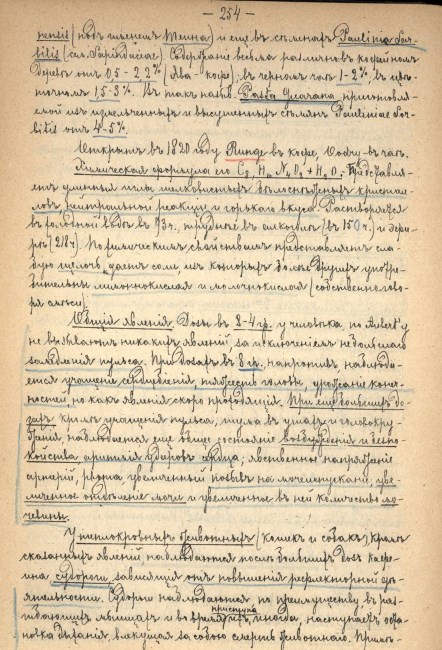 — 254 —
nensis (подъ именемъ Теина) и еще въ сѣменахъ Paulinia Sor-
bilis (сем. Sapindaceae). Содержаніе весьма различно въ кофейномъ
деревѣ отъ 0,5 - 2,2% (Ява - кофе), въ черномъ чаѣ 1-2%, въ цвѣ-
точномъ 1,5-3%. Въ такъ назыв. Pasta Guarana приготовля-
емой изъ измельченныхъ и высушенныхъ сѣмянъ Pauliniae Sor-
bilis отъ 4-5%.
Открытъ въ 1820 году Runge въ кофе, Oudry въ чаѣ.
Химическая формула его C8 H10 N4 O2 + H2 O. - Представля-
етъ длинныя иглы шелковистыхъ безцвѣтныхъ кристал-
ловъ нейтральной реакціи и горькаго вкуса. Растворяется
въ холодной водѣ въ 93 ч., труднѣе въ алкоголѣ (въ 150 ч.) и эфи-
рѣ (218 ч). По химическимъ свойствамъ представляетъ сла-
бую щелочь, даетъ соли, изъ которыхъ болѣе другихъ употре-
бительны лимоннокислая и молочнокислая (собственно гово-
ря смѣси).
Общія явленія. Дозы въ 2-4 гр. у человѣка, по Aubert'у
не вызываютъ никакихъ явленій, за исключеніемъ небольшаго
замедленія пульса. При дозахъ въ 8 гр. напротивъ, наблюда-
ется учащеніе сердцебіенія, тяжесть головы, дрожаніе конеч-
ностей, но какъ явленія скоро проходящія. При еще большихъ до-
захъ кромѣ учащенія пульса, шума въ ушахъ и головокру-
женія наблюдается еще общее состояніе возбужденія и безпо-
койства, аритмія ударовъ сердца; явственное напряженіе
артерій, рвота, увеличенный позывъ на мочеиспусканіе, уве-
личенное отдѣленіе мочи и увеличенное въ ней количество мо-
чевины.
У теплокровныхъ животныхъ (кошекъ и собакъ) кромѣ
сказанныхъ явленій, наблюдаются послѣ большихъ дозъ кофе-
ина судороги, зависящія отъ повышенія рефлекторной дѣ-
ятельности. Судороги наблюдаются по преимуществу въ раз-
гибающихъ мышцахъ и во время приступа ихъ, иногда, наступаетъ оста-
новка дыханія, влекущая за собою смерть животнаго. Примѣ-